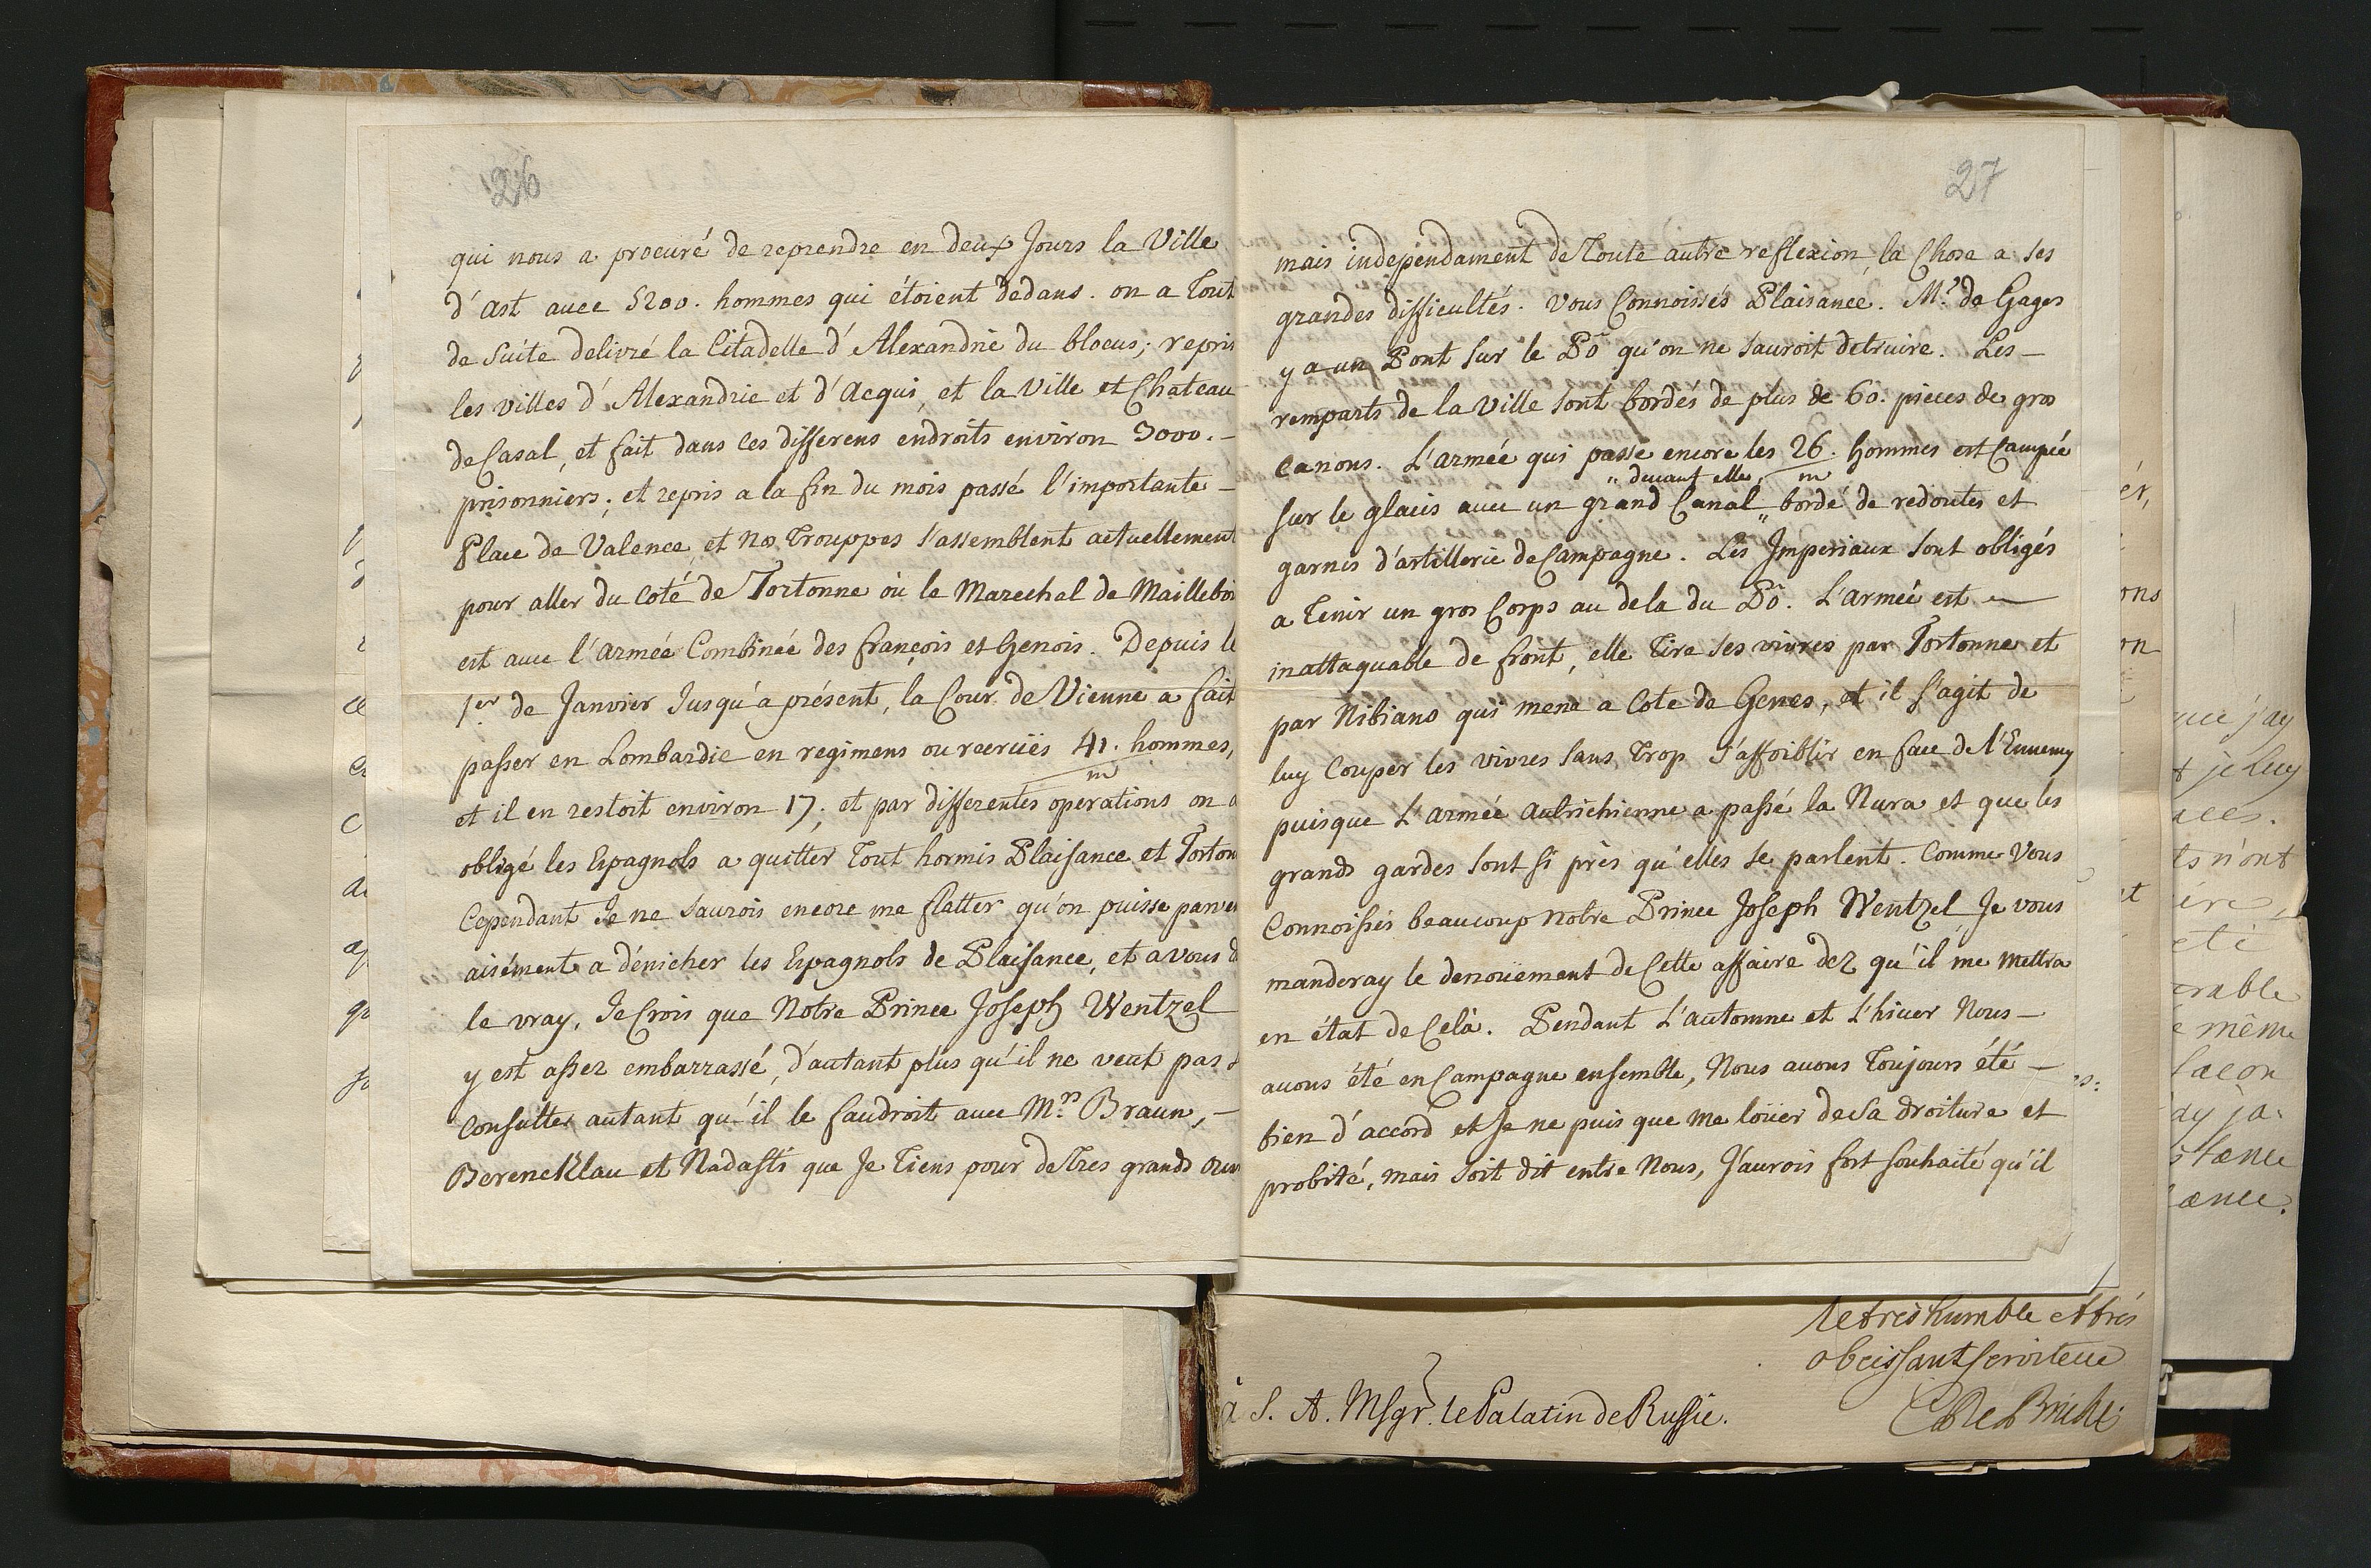 26
qui nous a procuré de reprendre en deux Jours la Ville
d'Ast avec 5200. hommes qui étoient dedans. on a Tout
de Suite delivré la Citadelle d'Alexandrie du blocus; repris
les villes d'Alexandrie et d'Acqui, et la Ville et Chateau
de Casal, et fait dans les differens endroits environ 3000. –
prisonniers; et repris a la fin du mois passé l'importante –
Place de Valence, et Nos Trouppes s'assemblent actuellement
pour aller du Coté de Tortonne où le Marechal de Maillebois
est avec l'Armée Combinée des françois et Genois. Depuis le
1er de Janvier Jusqu'a présent, la Cour de Vienne a fait
passer en Lombardie en regimens ou recruës 41. hommes,
m
et il en restoit environ 17; et par differentes operations on a
obligé les Espagnols a quitter Tout hormis Plaisance et Torton
Cependant Je ne Saurois encore me flatter qu'on puisse parve
aisément a dénicher les Espagnols de Plaisance, et a vous d
le vray, Je Crois que Notre Prince Joseph Wentzel
y est assez embarrassé, d'autant plus qu'il ne veut pas
Consulter autant qu'il le faudroit avec M.rs Braun, –
Berencklau et Nadasti que Je Tiens pour de Tres grands
27
mais independament de Toute autre reflexion, la Chose a ses
grandes difficultés. Vous Connoissés Plaisance. M.r de Gages
y a un Pont sur le Pô qu'on ne Sauroit detruire. Les –
remparts de la Ville sont bordés de plus de 60. pieces de gros
Canons. L'Armée qui passe encore les 26. hommes est Campée
" devant elle, m
sur le glacis avec un grand Canal " bordé de redoutes et
garnis d'artillerie de Campagne. Les Imperiaux sont obligés
a Tenir un gros Corps au dela du Pô. L'armée est –
inattaquable de front, elle Tire ses vivres par Tortonne et
par Nibiano qui mene a Cote de Genes, et il s'agit de
luy Couper les vivres sans Trop s'affoiblir en face de l'Ennemy
puisque L'Armée Autrichienne a passé la Nura et que les
grands gardes sont si près qu'elles se parlent. Comme Vous
Connoissés beaucoup notre Prince Joseph Wentzel, Je vous
manderay le denoüement de Cette affaire dez qu'il me mettra
en état de Celà. Pendant L'automne et L'hiver Nous –
avons été en Campagne ensemble, Nous avons Toujours été –
bien d'accord et Je ne puis que me loüer de Sa droiture et
probité, mais soit dit entre Nous, J'aurois fort souhaité qu'il
le tres humble et trés
obeissant serviteur
à S. A. Msgr. le Palatin de Russie.